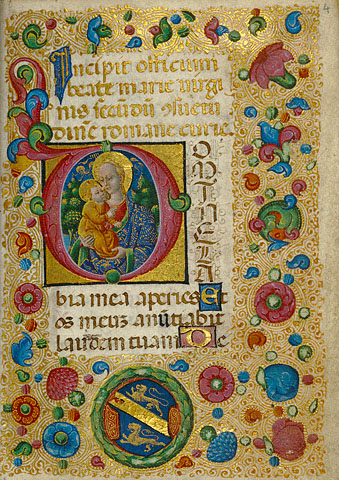 4
Incipit officium
beate marie virgi
nis secūdū ɔsuetu
dinē romane curie.
DOMINE LA
bia mea aperies Et
os meuȝ anūtiabit
laudem tuam De